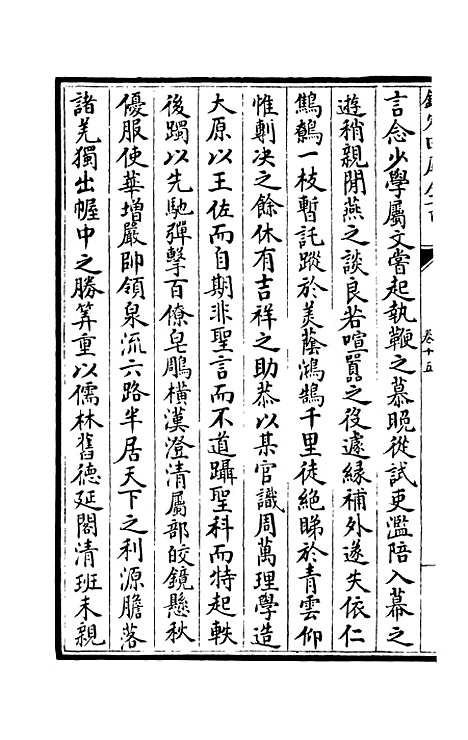 卷十五
言念少學屬文嘗起執鞭之慕晚從試吏濫陪入幕之
遊稍親閒燕之談良若喧囂之役遽緣補外遂失依仁
鷦鷯一枝暫託蹤於美蔭鴻鵠千里徒絶睇於青雲仰
惟剸决之餘休有吉祥之助恭以某官識周萬理學造
大原以王佐而自期非聖言而不道躡聖科而特起軼
後躅以先馳彈擊百僚皂鵰横漢澄清屬部皎鏡懸秋
優服使華增嚴帥領泉流六路半居天下之利源膽落
諸羌獨出幄中之勝筭重以儒林舊德延閣清班未親